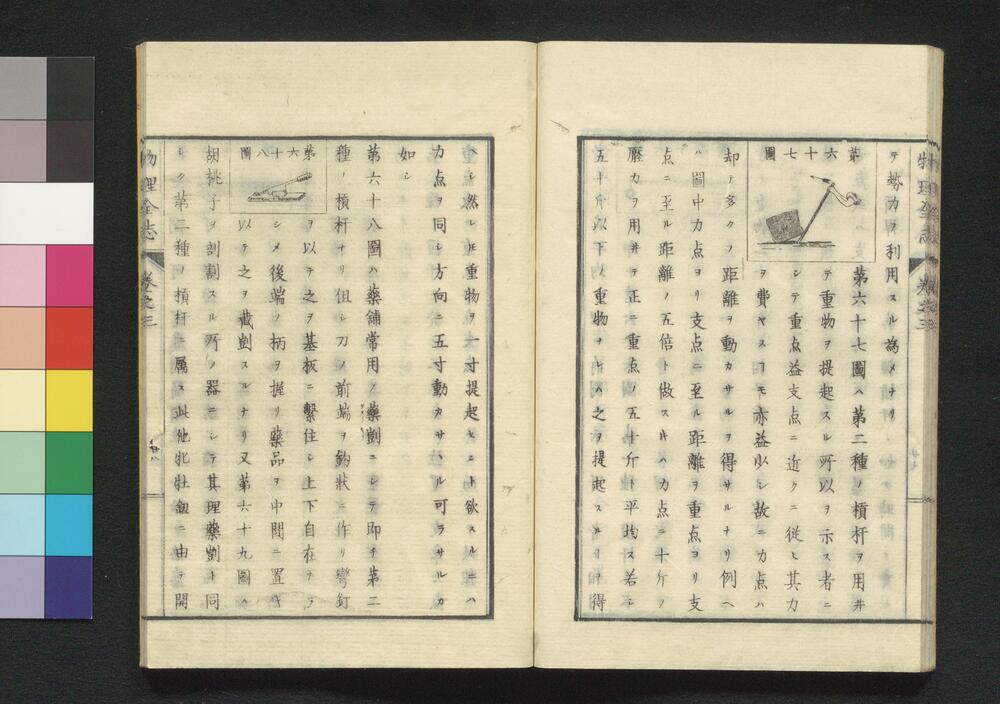 テ勢力ヲ利用スル為メナリ
第六十七圖
第六十七圖ハ第二種ノ槓杆ヲ用井
テ重物ヲ提起スル所以ヲ示ス者ニ
シテ重点益支点ニ近クニ從ヒ其力
ヲ費ヤスコモ亦益少シ故ニ力点ハ
却テ多クノ距離ヲ動カサルヲ得サルナリ例ヘ
ハ圖中力点ヨリ支点ニ至ル距離ヲ重点ヨリ支
点ニ至ル距離ノ五倍ト做スキハ力点ニ十斤ノ
壓力ヲ用井テ正ニ重点ノ五十斤ト平均ス若シ
五十斤以下ノ重物ナレハ之ヲ提起スルヿヲ得
物理全志 卷之三
ヘシ然レ𪜈重物ヲ一寸提起セント欲スルニハ
力点ヲ同シ方向ニ五寸動カサヽル可ラサルカ
如シ
第六十八圖ハ藥舗常用ノ藥剉ニシテ即チ第二
種ノ槓杆ナリ但シ刀ノ前端ヲ鈎狀ニ作リ彎釘
第六十八圖
ヲ以テ之ヲ基板ニ繫住シ上下自在ナラ
シメ後端ノ柄ヲ握リ藥品ヲ中間ニ置キ
以テ之ヲ截剉スルナリ又第六十九圖ハ
胡桃子ヲ剖割スル所ノ器ニシテ其理藥剉ト同
シク第二種ノ槓杆ニ属ス此他牝牡釦ニ由テ開
物理全志 卷之三